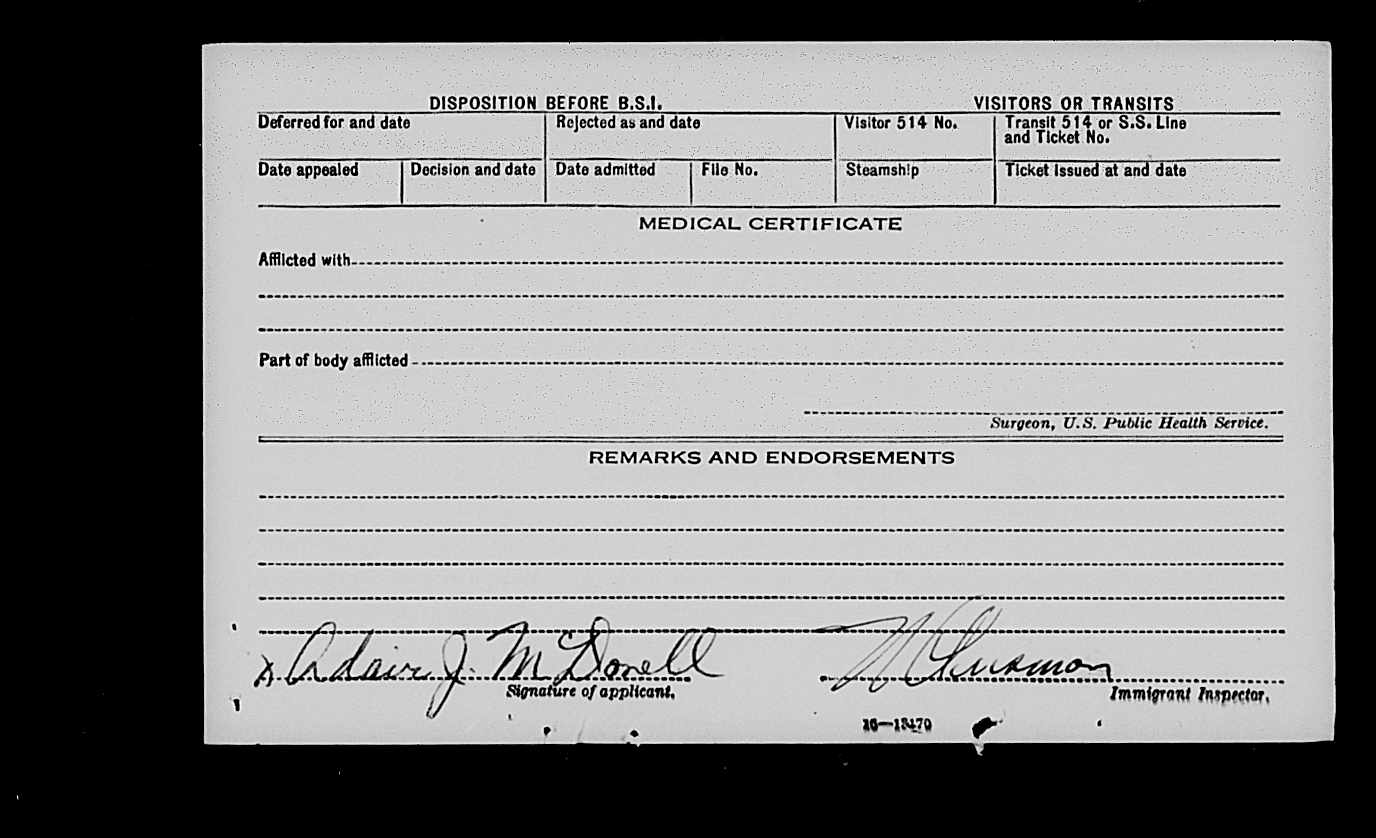 DISPOSITION BEFORE B.S.I. VISITORS OR TRANSITS
Deferred for and date Rejected as and date Visitor 514 No. Transit 514 or S.S. Line
and Ticket No.
Date appealed Decision and date Date admitted File No. Steamship Ticket issued at and date
MEDICAL CERTIFICATE
Afflicted with
Part of body afflicted
Surgeon, U.S. Public Health Service.
REMARKS AND ENDORSEMENTS
x Adair J. McDonell
Signature of applicant. Immigrant Inspector.
16—13470